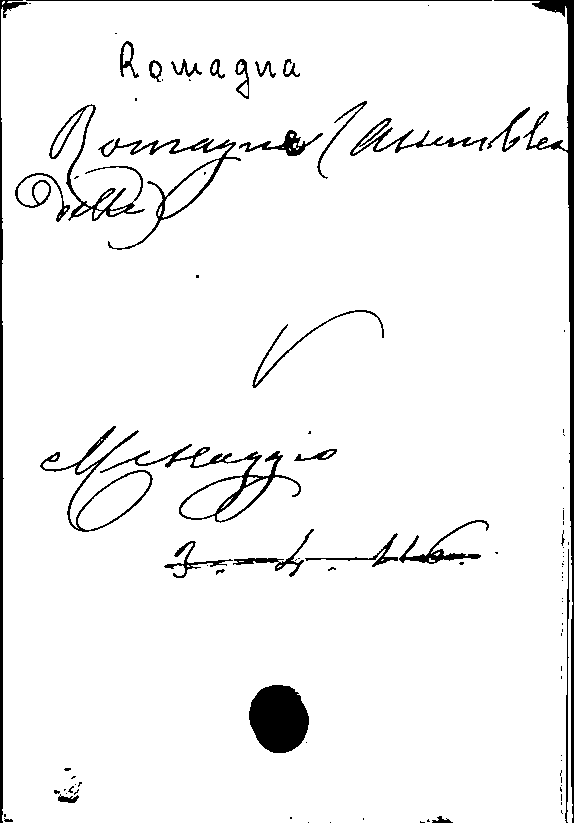 Romagna
Romagne (Assemblea
delle)
V
Messaggio
3. 4. 116.